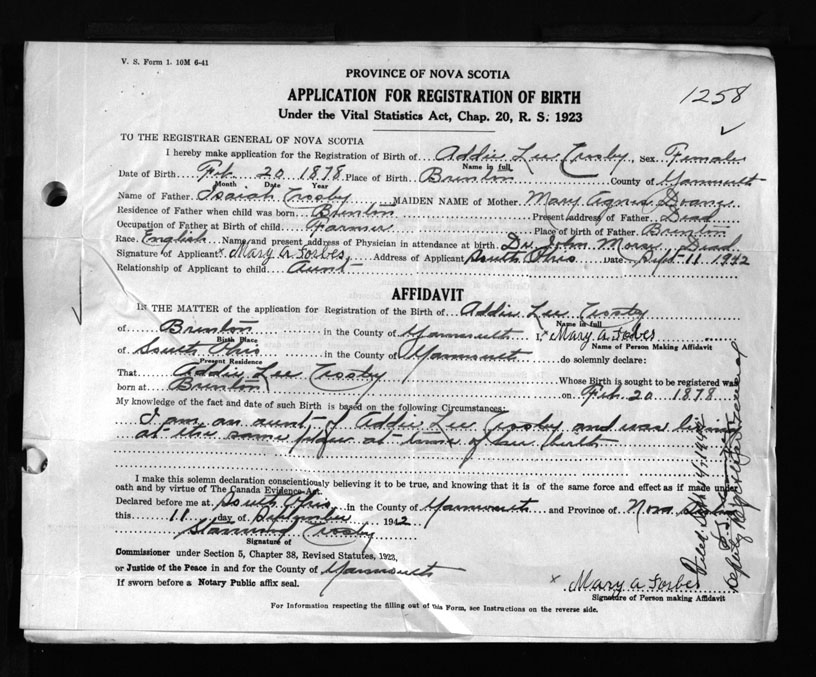 V. S. Form 1. 10M 6-41
PROVINCE OF NOVA SCOTIA
1258
APPLICATION FOR REGISTRATION OF BIRTH
Under the Vital Statistics Act, Chap. 20, R. S. 1923
TO THE REGISTRAR GENERAL OF NOVA SCOTIA
I hereby make application for the Registration of Birth of Addie Lee Crosby, Sex Female
Name in full
Date of Birth Feb. 20 1878 Place of Birth Brenton County of Yarmouth
Month Date Year
Name of Father Isaiah Crosby MAIDEN NAME of Mother Mary Agnes Doane
Residence of Father when child was born Brenton Present address of Father Dead
Occupation of Father at Birth of child Farmer Place of birth of Father Brenton
Race English Name and present address of Physician in attendance at birth Dr. John Morse, Dead
Signature of Applicant x Mary A Forbes Address of Applicant South Ohio Date Sept 11 1942
Relationship of Applicant to child Aunt
AFFIDAVIT
IN THE MATTER of the application for Registration of the Birth of Addie Lee Crosby
Name in full
of Brenton in the County of Yarmouth I, x Mary A Forbes
Birth Place Name of Person Making Affidavit
of South Ohio in the County of Yarmouth do solemnly declare:
Present Residence
That Addie Lee Crosby Whose Birth is sought to be registered was
born at Brenton on Feb. 20 1878
My knowledge of the fact and date of such Birth is based on the following Circumstances:
I am an aunt of Addie Lee Crosby and was living
at the same place at time of her birth
I make this solemn declaration conscientiously believing it to be true, and knowing that it is of the same force and effect as if made under
oath and by virtue of The Canada Evidence Act.
Declared before me at South Ohio in the County of Yarmouth and Province of Nova Scotia
this 11 day of September 1942
Stanwood Crosby
Signature of
Commissioner under Section 5, Chapter 38, Revised Statutes, 1923,
or Justice of the Peace in and for the County of Yarmouth
If sworn before a Notary Public affix seal.
x Mary A Forbes
Signature of Person making Affidavit
For Information respecting the filling out of this Form, see Instructions on the reverse side.
Filed Sept
Deputy Registrar General